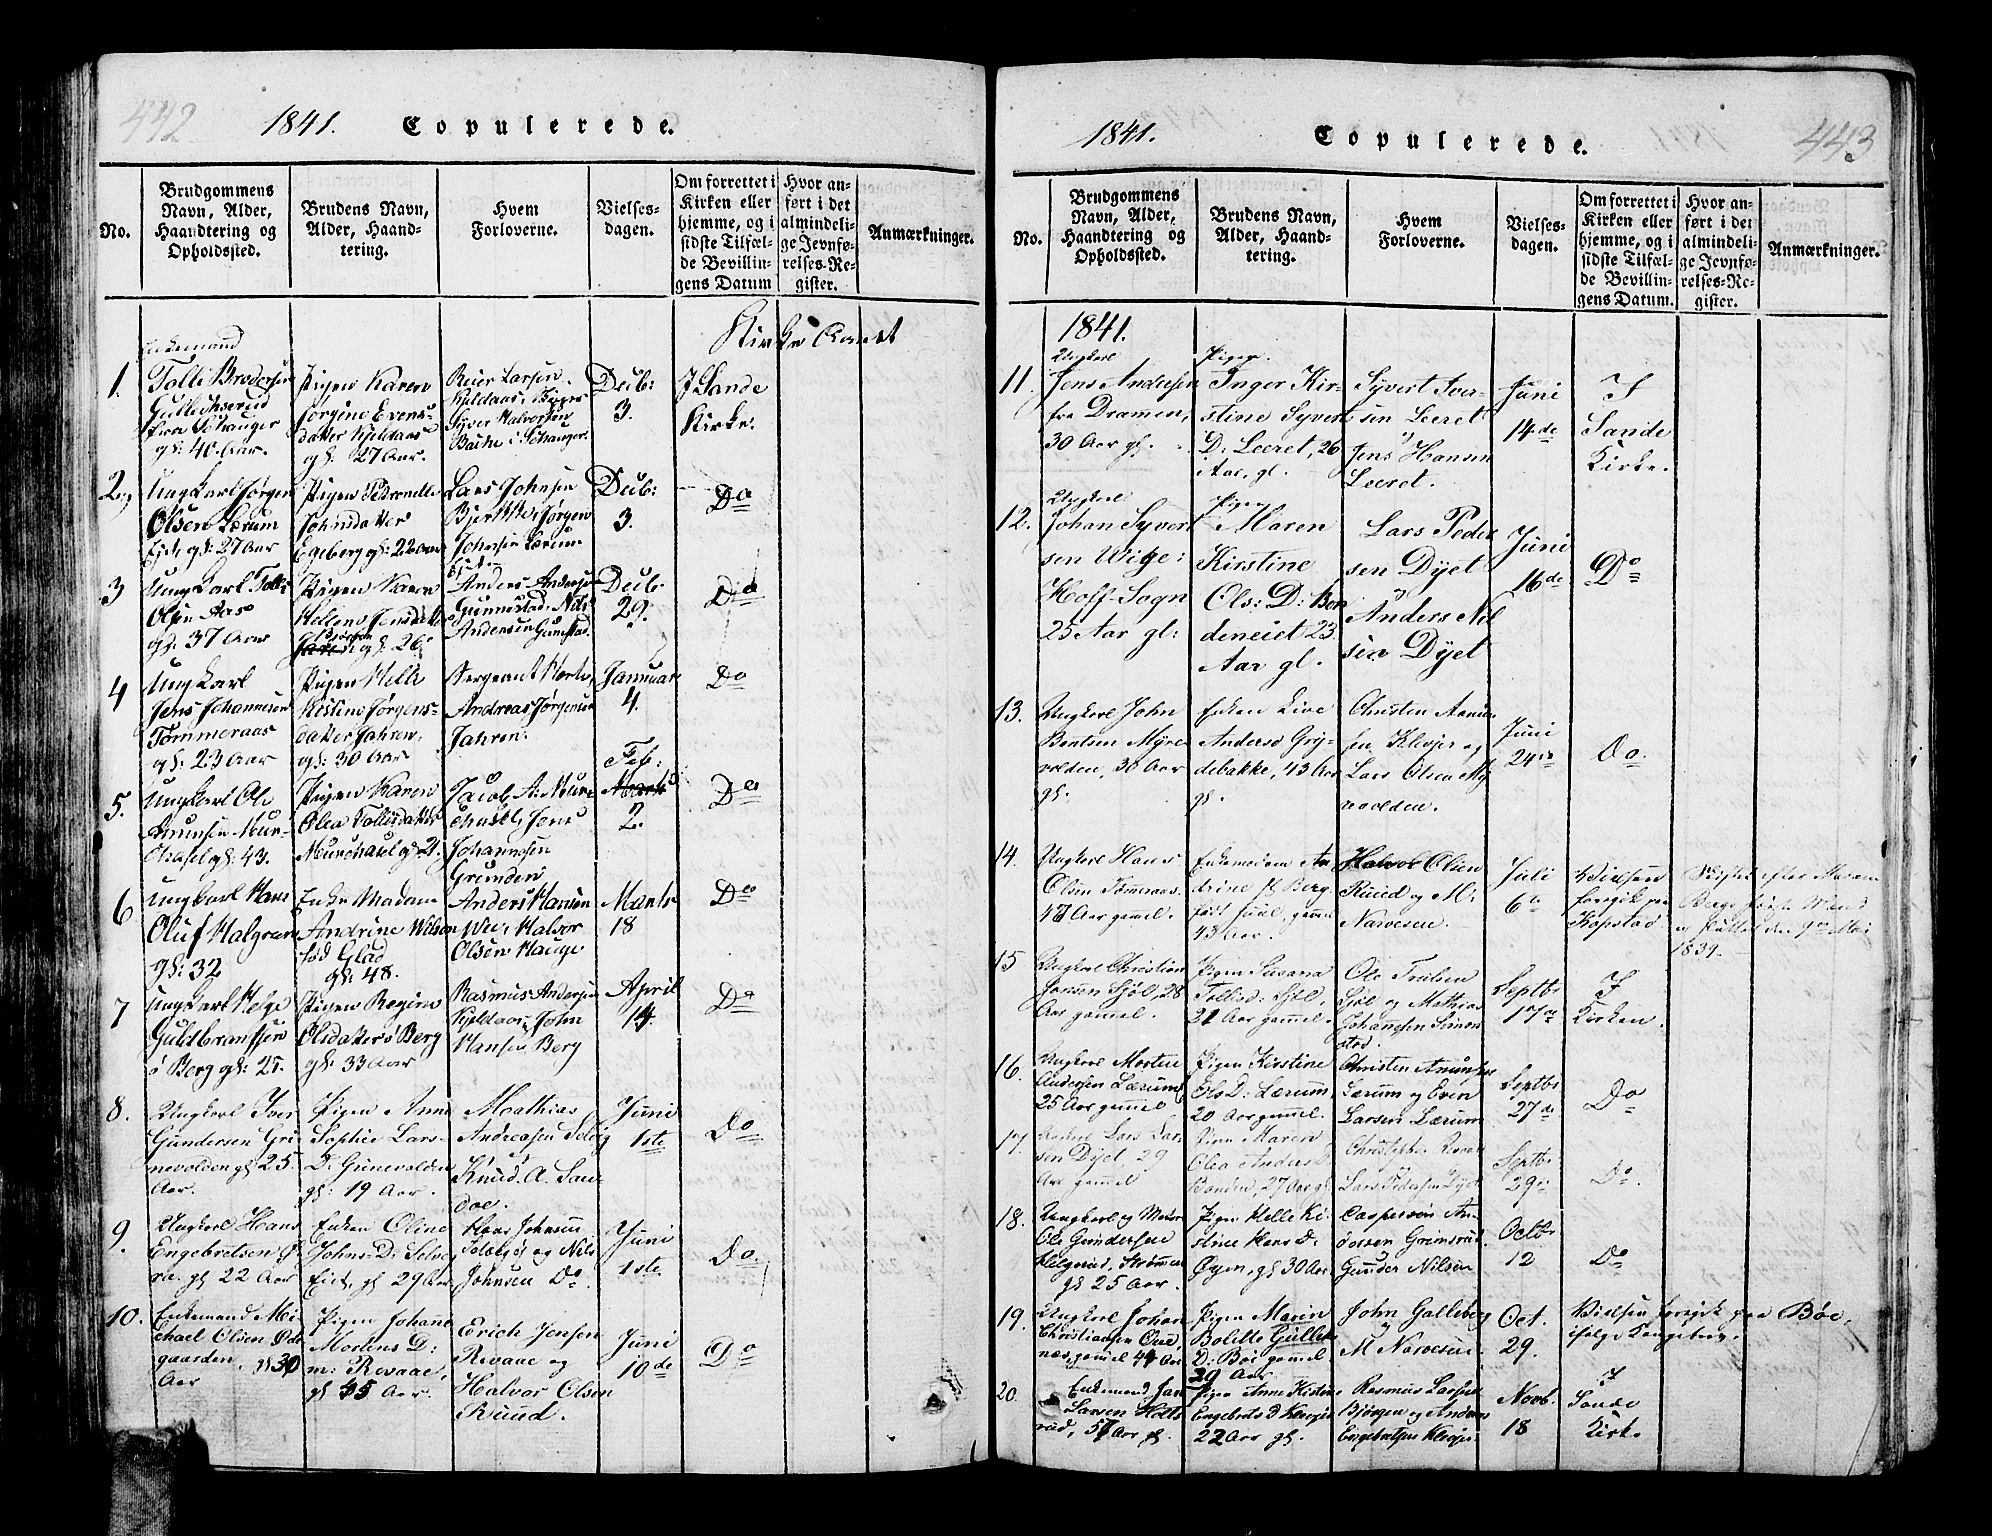 442
1841.
Copulerede.
No.
Brudgommens
Navn, Alder,
Haandtering og
Opholdssted.
Brudens Navn,
Alder, Haand-
tering.
Hvem
Forloverne.
Vielses-
dagen.
Om forrettet i
Kirken eller
hjemme, og i
sidste Tilfæl-
de Bevillin-
gens Datum
Hvor an-
ført i det
almindeli-
ge Jevnfø-
relses-Re-
gister.
Anmærkninger.
Kirke Aaret
1.
Enkemand
Tolli Brodersen
fra
gl: 40 Aar.
Pigen Karen
Jørgine Evens-
datter Kjeldaas
gl: 27 Aar.
Reier Larsen
Kjeldaas,
Syver Halvorsen
Decb:
3.
I Sande
Kirke.
2
Ungkarl Jørgen
Olsen Lærum
Eje, gl: 27 Aar
Pigen Petronelle
Johnsdatter
Egeberg gl: 22 Aar
Lars Johnsen
Jørgen
Johnsen Lærum
Decb:
3.
Do
3
Ungkarl Tolli
Olsen Aas
gl: 37 Aar
Pigen Karen
Hellene Jensdatter
gl: 26
Anders Andersen
Gunnestad, Nils
Andersen Gunestad.
Decb:
29.
Do
4
Ungkarl
Jens Johannesen
Tommeraas
gl: 23 Aar
Pigen Helle
Kistine Jørgens-
datter Jahren,
gl: 30 Aar
Sergeant
Andreas Jørgensen
Jahren.
Januar
4.
Do
5.
Ungkarl Ole
gl: 43.
Pigen Karen
Olea Tollisdatter
Jacob A:
Jens
Johannesen
Grunden
Feb:
Marts
2.
Do
6
Ungkarl Hans
Oluf Halgran
gl: 32
Enke Madam
Andrine Wilson
fød Glad
gl: 48.
Anders Hansen
Wii, Halvor
Olsen Hauge
Marts
18
Do
7
Ungkarl Helge
Guldbransen
ø Berg gl: 25.
Pigen Regine
Olsdatter ø Berg
gl: 33 Aar
Rasmus Andersen
Kjeldaas, John
Hansen Berg
April
14.
Do
8.
Ungkarl Iver
Gundersen Gri-
nevolden gl 25
Aar.
Pigen Anne
Sophie Lars-
D: Grinevolden
gl: 19 Aar.
Mathias
Andreasen Selvig
Knud. A. San-
doe.
Juni
1ste
Do
9.
Ungkarl Hans
Engebretsen
gl 22 Aar
Enken Oline
Johns-D: Selvig
Eiet, gl 29 Aar
Hans Johnsen
og Nils
Johnsen Do.
Juni
1ste
Do.
10.
Enkemand Mi-
chael Olsen
gaarden, gl 30
Aar
Pigen Johane
Mortens D:
m: Revaae,
gl 35 Aar.
Erich Jensen
Revaae og
Halvor Olsen
Ruud.
Juni
10de
Do
1841.
Copulerede.
443
No.
Brudgommens
Navn, Alder,
Haandtering og
Opholdssted.
Brudens Navn,
Alder, Haand-
tering.
Hvem
Forloverne.
Vielses-
dagen.
Om forrettet i
Kirken eller
hjemme, og i
sidste Tilfæl-
de Bevillin-
gens Datum.
Hvor an-
ført i det
almindeli-
ge Jevnfø-
relses-Re-
gister.
Anmærkninger.
1841.
11.
Ungkarl
Jens Andersen
fra Dramen,
30 Aar gl.
Pigen
Inger Kir-
stine Syvert
D: Leeret, 26
Aar, gl.
Syvert Iver-
sen Leeret
Jens Hansen
Leeret.
Juni
14de
I
Sande
Kirke.
12.
Ungkarl
Johan Syvert
sen Wige:
Hoff-Sogn
25 Aar gl:
Pigen
Maren
Kirstine
Ols: D: Bon
deneiet 23
Aar gl.
Lars Peder
sen Dyet
Anders Nil
sen Dyet
Juni
16de
Do
13.
Ungkarl John
Bentsen Myre
volden, 30 Aar
gl.
Enken Live
Anders Gry-
debakke, 43 Aar
gl.
Christen
sen Klever og
Lars Olsen My
revolden.
Juni
24de
Do.
14.
Ungkarl Hans
Olsen Tømeraas
47 Aar gamel.
Enkemadam An
drine sl Berg
født Juul, gamel
43 Aar.
Halvor Olsen
Ruud og M:
Narvesen.
Juli
6te
Vielsen
foregik paa
Kopstad
Skiftet efter Madam
Bergs første Mand
er sluttet den 9de Mai
1839.
15
Ungkarl Christian
Hansen Sjøl, 28
Aar gamel.
Pigen Susana
Tollisd: Sjøl,
21 Aar gamel.
Ole Trulsen
Sjøl og Mathias
Johannsen Simon
stad.
Septbr
17de
I
Kirken.
16.
Ungkarl Morten
Andersen Lærum,
25 Aar gamel
Pigen Kirstine
Ols D: Lærum
20 Aar gamel.
Christen
Lærum og Even
Larsen Lærum.
Septbr
27de
Do
17.
Lars Lar
sen Dyet, 29
Aar gamel
Pigen Maren
Olea Anders D
Bonden, 27 Aar gl
Lars Pedersen Dyet
Septbr
29de
Do.
18.
Ungkarl og
Ole Gundersen
Strømmen
gl 25 Aar.
Pigen Helle Ki-
stine Hans D.
Øyen, gl 30 Aar
Caspersen
Grimsrud
Gunder Nilsen
Octbr
12
Do
19.
Ungkarl Johan
Christiansen
næs, gamel 44 Aar
Pigen Marin
Bolette Gullek
D: Bøe gamel
29 Aar
John Galleberg
og
M Narvesen
Oct.
29.
Vielsen foregik paa Bøe,
ifølge Kongebrev.
20.
Enkemand Jan
Larsen Holts
rud, 57 Aar gl.
Pigen Anne Kistine
Engebrets D Klever
22 Aar gl.
Rasmus Larsen
Bjørgen og Anders
Engebretsen Klever
Novb.
18
I
Sande
Kirke